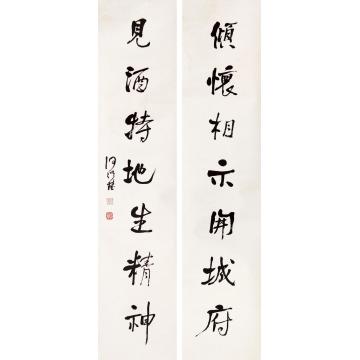 傾懷相示開城府
見酒特地生精神